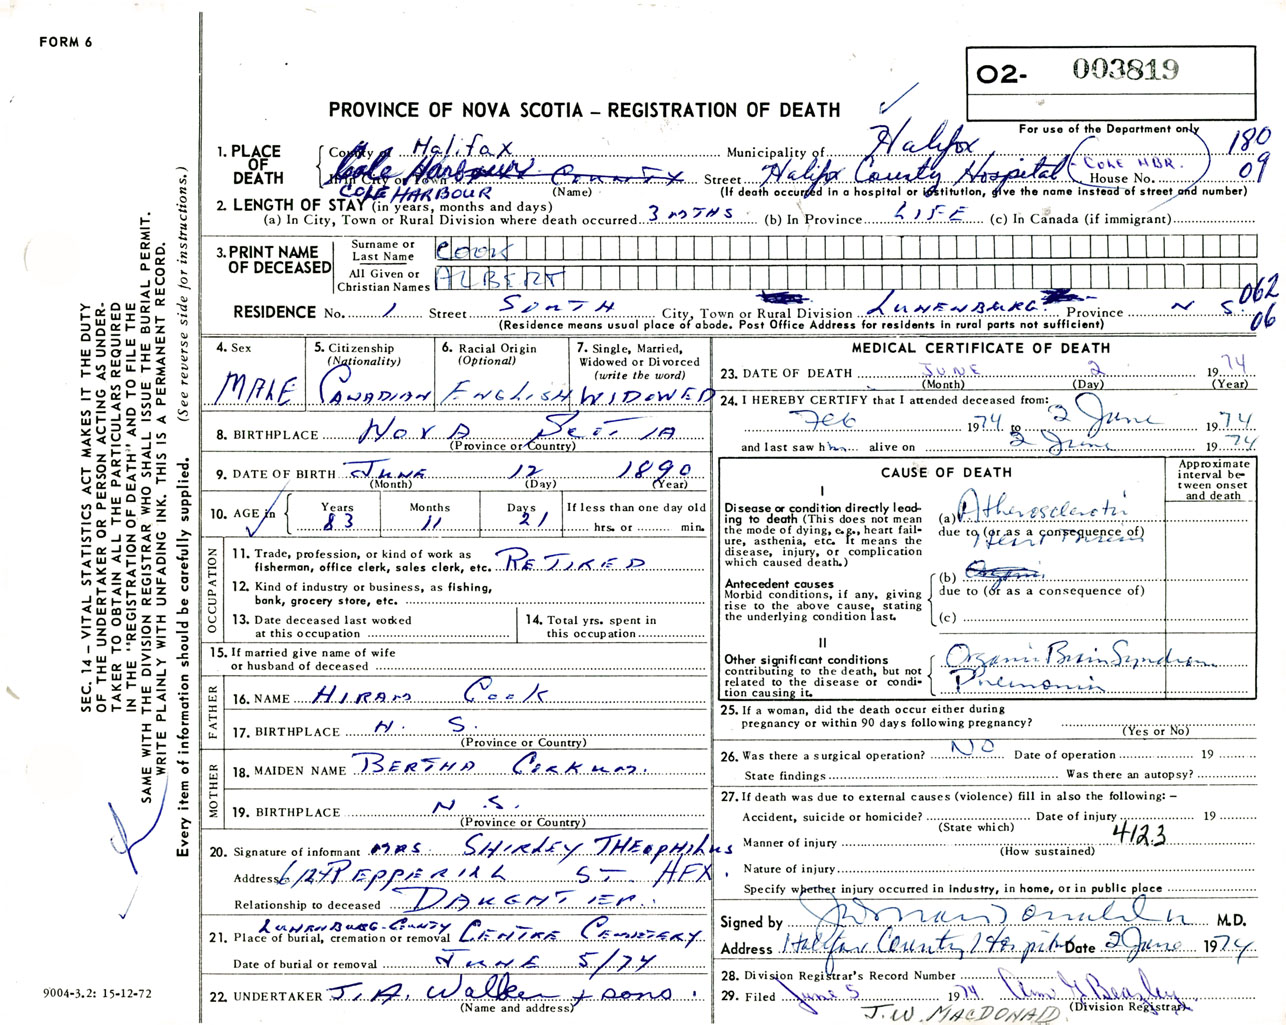 FORM 6
O2- 003819
PROVINCE OF NOVA SCOTIA – REGISTRATION OF DEATH
For use of the Department only
180
09
1. PLACE OF DEATH
County of Halifax Municipality of Halifax
Cole Harbour County Street Halifax County Hospital House No. COLE HBR.
COLE HARBOUR (Name) (If death occurred in a hospital or institution, give the name instead of street and number)
2. LENGTH OF STAY (in years, months and days)
(a) In City, Town or Rural Division where death occurred 3 MTHS. (b) In Province LIFE (c) In Canada (if immigrant)
3. PRINT NAME OF DECEASED
Surname or Last Name COOK
All Given or Christian Names ALBERT
RESIDENCE No. 1 Street SOUTH City, Town or Rural Division LUNENBURG Province N S.
(Residence means usual place of abode. Post Office Address for residents in rural parts not sufficient)
062
06
4. Sex MALE
5. Citizenship (Nationality) CANADIAN
6. Racial Origin (Optional) ENGLISH
7. Single, Married, Widowed or Divorced (write the word) WIDOWED
8. BIRTHPLACE NOVA SCOTIA
(Province or Country)
9. DATE OF BIRTH JUNE 12 1890
(Month) (Day) (Year)
10. AGE in Years 83 Months 11 Days 21 If less than one day old hrs. or min.
OCCUPATION
11. Trade, profession, or kind of work as fisherman, office clerk, sales clerk, etc. RETIRED
12. Kind of industry or business, as fishing, bank, grocery store, etc.
13. Date deceased last worked at this occupation
14. Total yrs. spent in this occupation
15. If married give name of wife or husband of deceased
FATHER
16. NAME HIRAM COOK
17. BIRTHPLACE N. S.
(Province or Country)
MOTHER
18. MAIDEN NAME BERTHA CORKUM.
19. BIRTHPLACE N.S.
(Province or Country)
20. Signature of informant MRS. SHIRLEY THEOPHILUS
Address 6124 PEPPERELL ST. HFX.
Relationship to deceased DAUGHTER.
LUNENBURG-COUNTY
21. Place of burial, cremation or removal CENTRE CEMETERY
Date of burial or removal JUNE 5/74
22. UNDERTAKER J. A. Walker & sons.
(Name and address)
MEDICAL CERTIFICATE OF DEATH
23. DATE OF DEATH JUNE 2 1974
(Month) (Day) (Year)
24. I HEREBY CERTIFY that I attended deceased from:
Feb 1974 to 2 June 1974
and last saw him alive on 2 June 1974
CAUSE OF DEATH
Approximate interval between onset and death
I
Disease or condition directly leading to death (This does not mean the mode of dying, e.g., heart failure, asthenia, etc. It means the disease, injury, or complication which caused death.)
(a) Atherosclerotic
due to (or as a consequence of)
Heart Disease
Antecedent causes
Morbid conditions, if any, giving rise to the above cause, stating the underlying condition last.
(b) Organic
due to (or as a consequence of)
(c)
II
Other significant conditions contributing to the death, but not related to the disease or condition causing it.
Organic Brain Syndrome
Pneumonia
25. If a woman, did the death occur either during pregnancy or within 90 days following pregnancy?
(Yes or No)
26. Was there a surgical operation? NO Date of operation 19
State findings Was there an autopsy?
27. If death was due to external causes (violence) fill in also the following: –
Accident, suicide or homicide? Date of injury 19
(State which) 412.3
Manner of injury
(How sustained)
Nature of injury
Specify whether injury occurred in industry, in home, or in public place
Signed by M.D.
Address Halifax County Hospital Date 2 June 1974
28. Division Registrar's Record Number
29. Filed June 5 1974
(Division Registrar)
J.W. MACDONALD
SEC. 14 – VITAL STATISTICS ACT MAKES IT THE DUTY
OF THE UNDERTAKER OR PERSON ACTING AS UNDER-
TAKER TO OBTAIN ALL THE PARTICULARS REQUIRED
IN THE "REGISTRATION OF DEATH" AND TO FILE THE
SAME WITH THE DIVISION REGISTRAR WHO SHALL ISSUE THE BURIAL PERMIT.
WRITE PLAINLY WITH UNFADING INK. THIS IS A PERMANENT RECORD.
Every item of information should be carefully supplied. (See reverse side for instructions.)
9004-3.2: 15-12-72